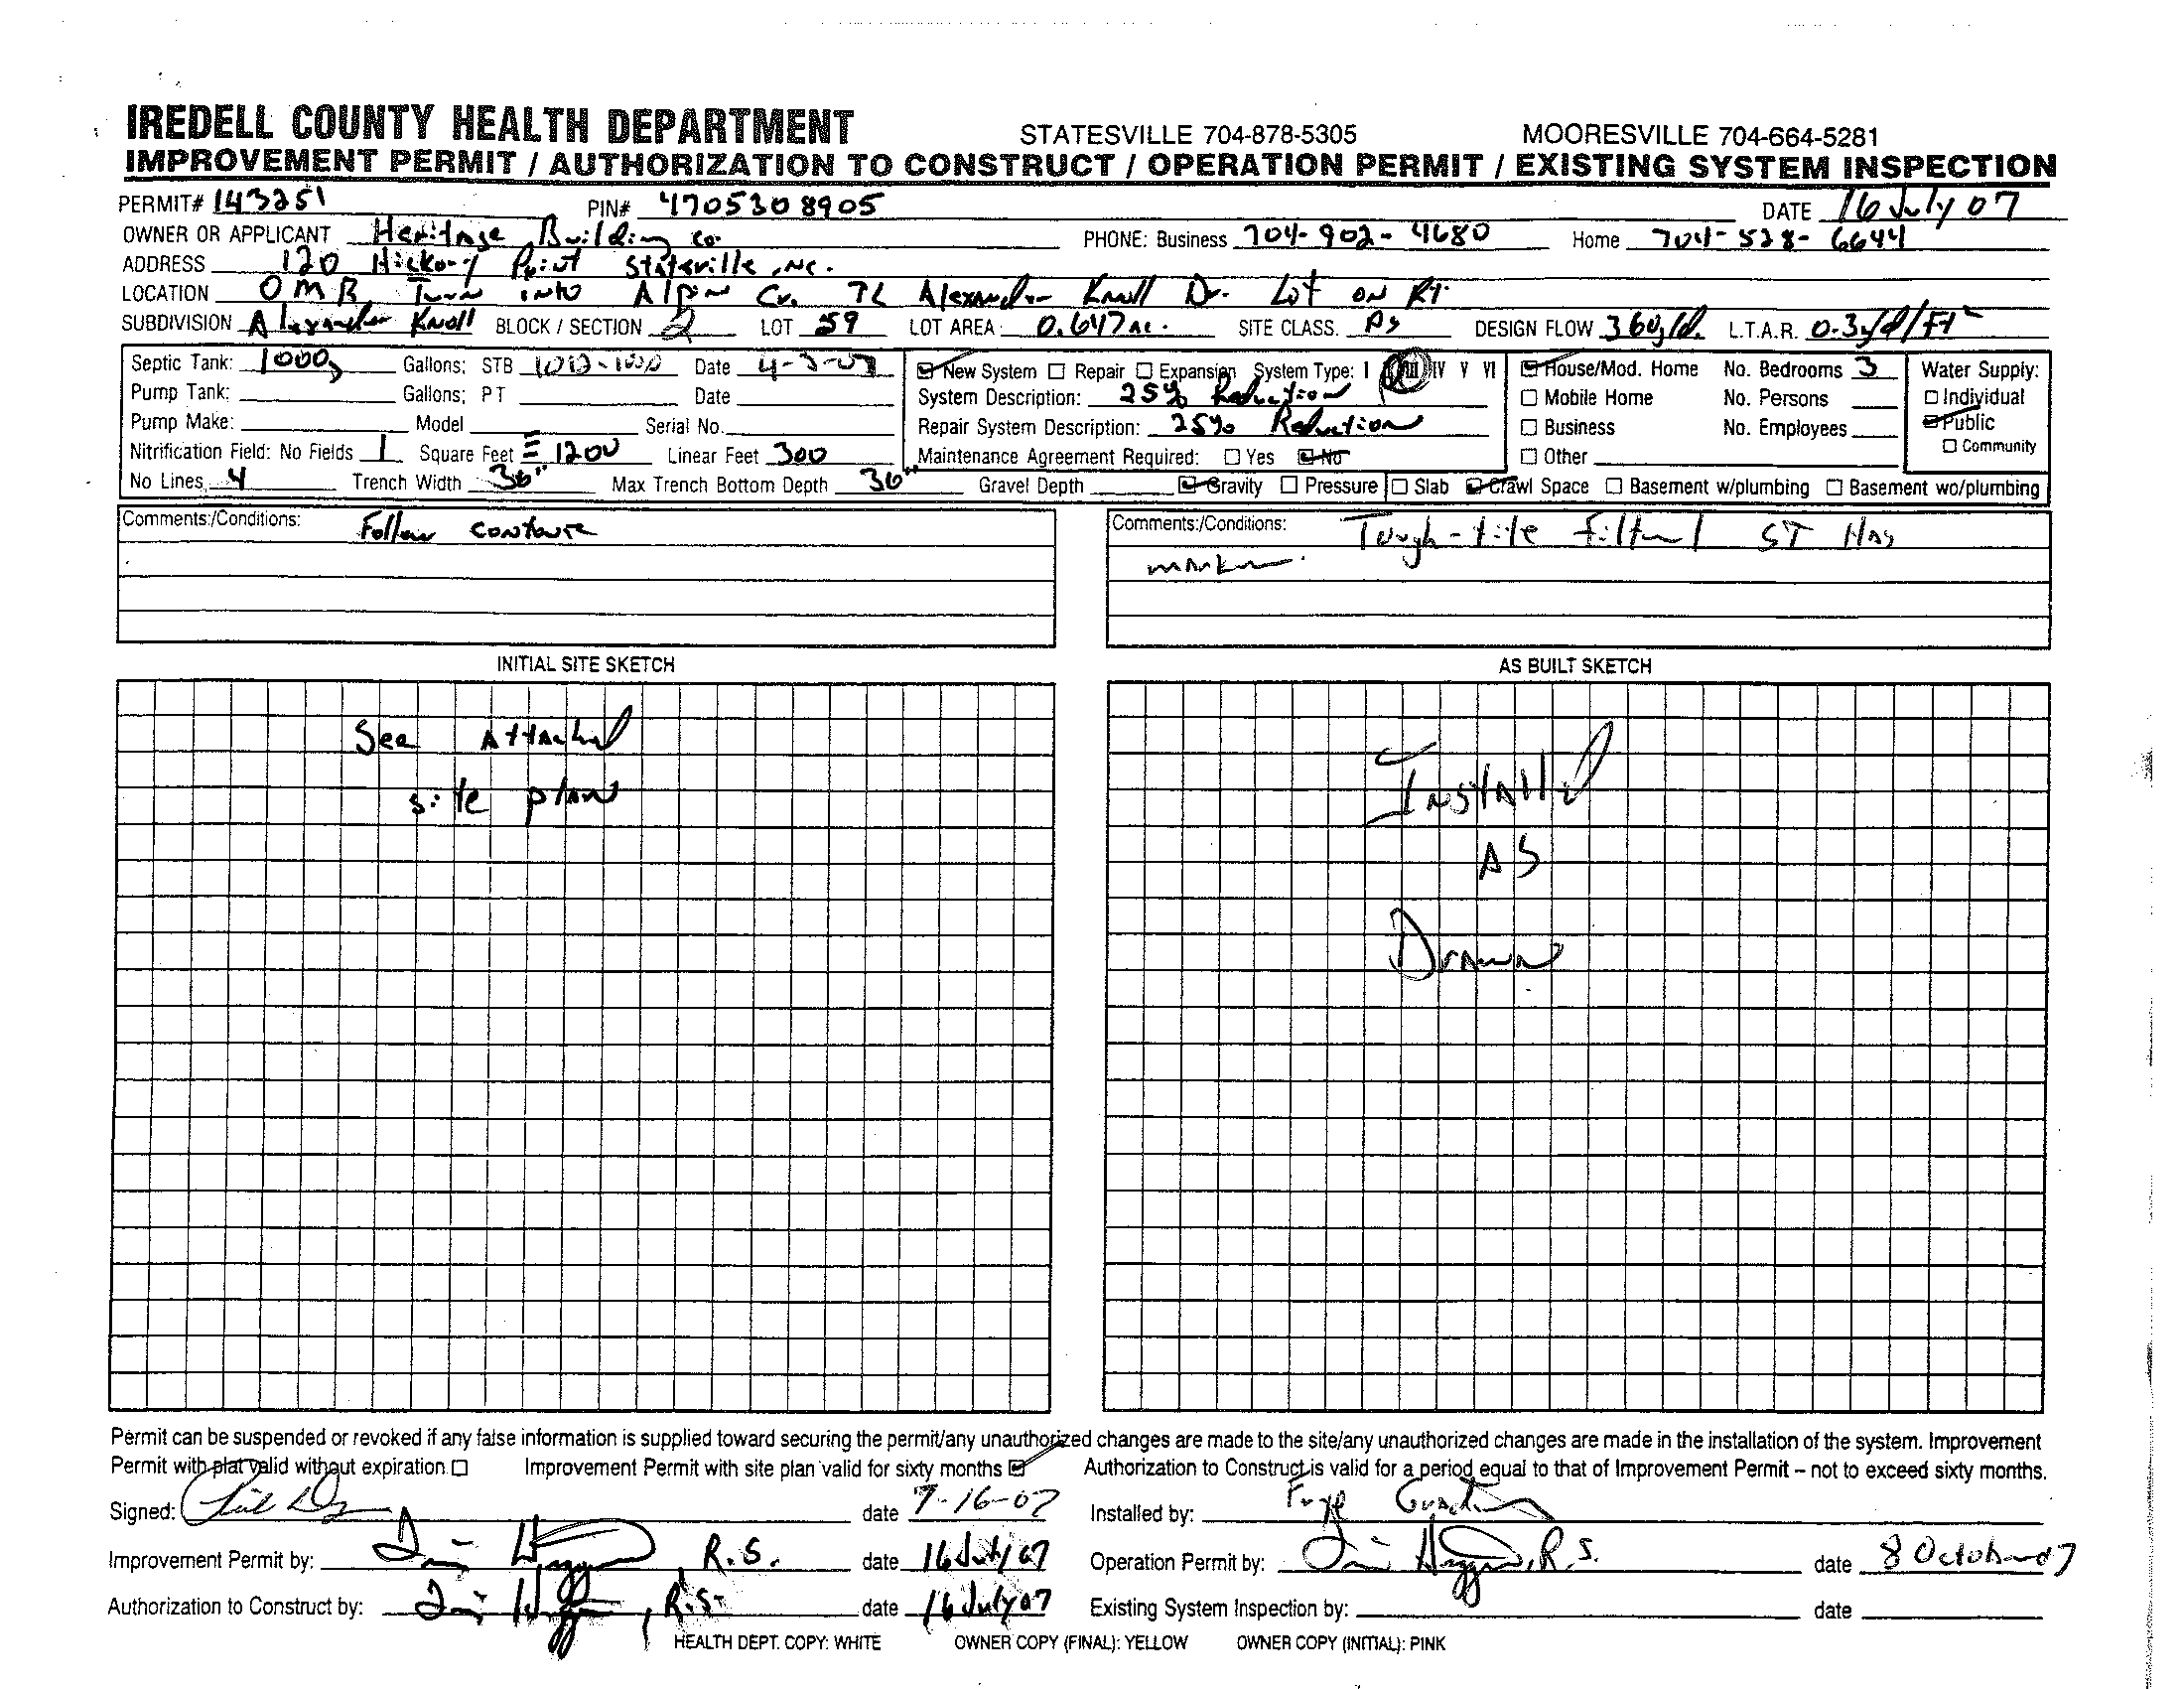 IREDELL COUNTY HEALTH DEPARTMENT STATESVILLE 704-878-5305 MOORESVILLE 704-664-5281
IMPROVEMENT PERMIT / AUTHORIZATION TO CONSTRUCT / OPERATION PERMIT / EXISTING SYSTEM INSPECTION
PERMIT# 143251 PIN# 4705308905 DATE 16 July 07
OWNER OR APPLICANT Heritage Building Co. PHONE: Business 704-902-4680 Home 704-528-6644
ADDRESS 120 Hickory Point Statesville, NC.
LOCATION OMB Turn into Alpin Cr. TL Alexander Knoll Dr. Lot on Rt
SUBDIVISION Alexander Knoll BLOCK / SECTION 2 LOT 59 LOT AREA 0.647 ac. SITE CLASS. PS DESIGN FLOW 360g/d. L.T.A.R. 0.3g/d/Ft²
Septic Tank: 1000g Gallons: STB Date 4-3-07 New System Repair Expansion System Type: I III IV V VI House/Mod. Home No. Bedrooms 3 Water Supply:
Pump Tank: Gallons: PT Date System Description: 25% Reduction Mobile Home No. Persons Individual
Pump Make: Model Serial No. Repair System Description: 25% Reduction Business No. Employees Public
Nitrification Field: No Fields 1 Square Feet = 1200 Linear Feet 300 Maintenance Agreement Required: Yes No Other Community
No Lines 4 Trench Width 36" Max Trench Bottom Depth 36" Gravel Depth Gravity Pressure Slab Crawl Space Basement w/plumbing Basement wo/plumbing
Comments:/Conditions: Follow contour
Comments:/Conditions: Tough-tite filter ST Has
marker.
INITIAL SITE SKETCH
See Attached
site plan
AS BUILT SKETCH
Installed
As
Drawn
Permit can be suspended or revoked if any false information is supplied toward securing the permit/any unauthorized changes are made to the site/any unauthorized changes are made in the installation of the system. Improvement
Permit with plat valid without expiration Improvement Permit with site plan valid for sixty months Authorization to Construct is valid for a period equal to that of Improvement Permit – not to exceed sixty months.
Signed: date 7-16-07 Installed by:
Improvement Permit by: R.S. date 16 July 07 Operation Permit by: R.S. date 8 October 07
Authorization to Construct by: R.S. date 16 July 07 Existing System Inspection by: date
HEALTH DEPT. COPY: WHITE OWNER COPY (FINAL): YELLOW OWNER COPY (INITIAL): PINK